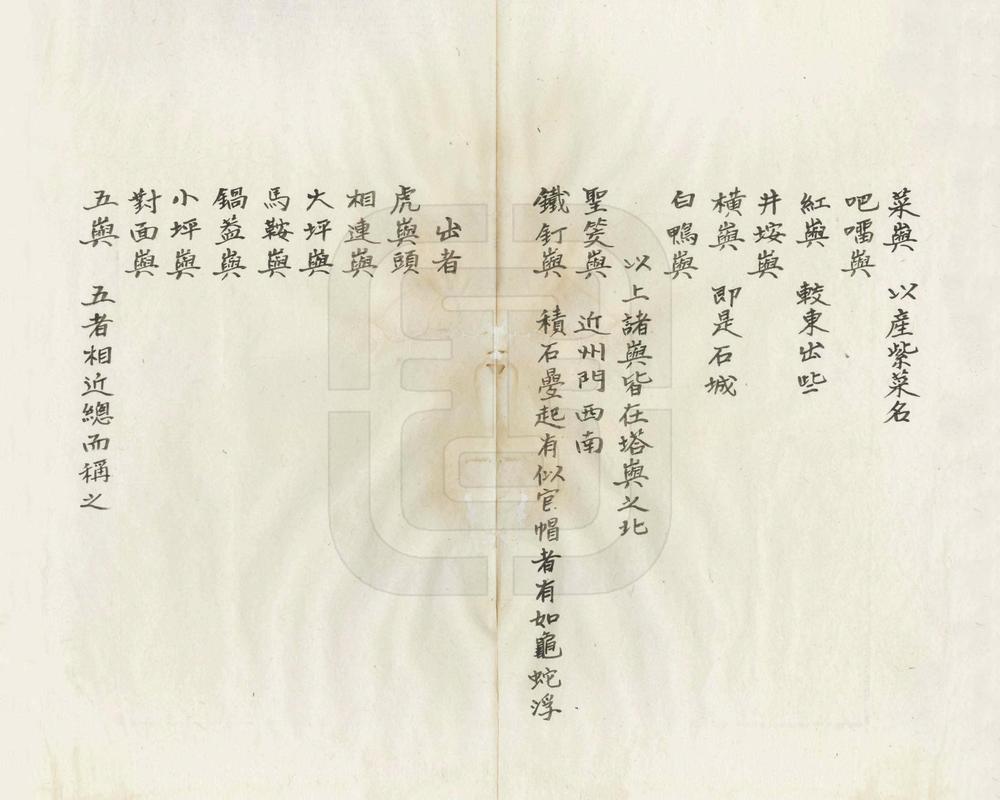 菜嶼　以產紫菜名
吧㗊嶼
紅嶼　較東出些
井垵嶼
橫嶼　即是石城
白鴨嶼
以上諸嶼皆在塔嶼之北
聖筊嶼　近州門西南
鐵釘嶼　積石疊起有似官帽者有如龜蛇浮
出者
虎嶼頭
相連嶼
大坪嶼
馬鞍嶼
鍋蓋嶼
小坪嶼
對面嶼
五嶼　五者相近總而稱之